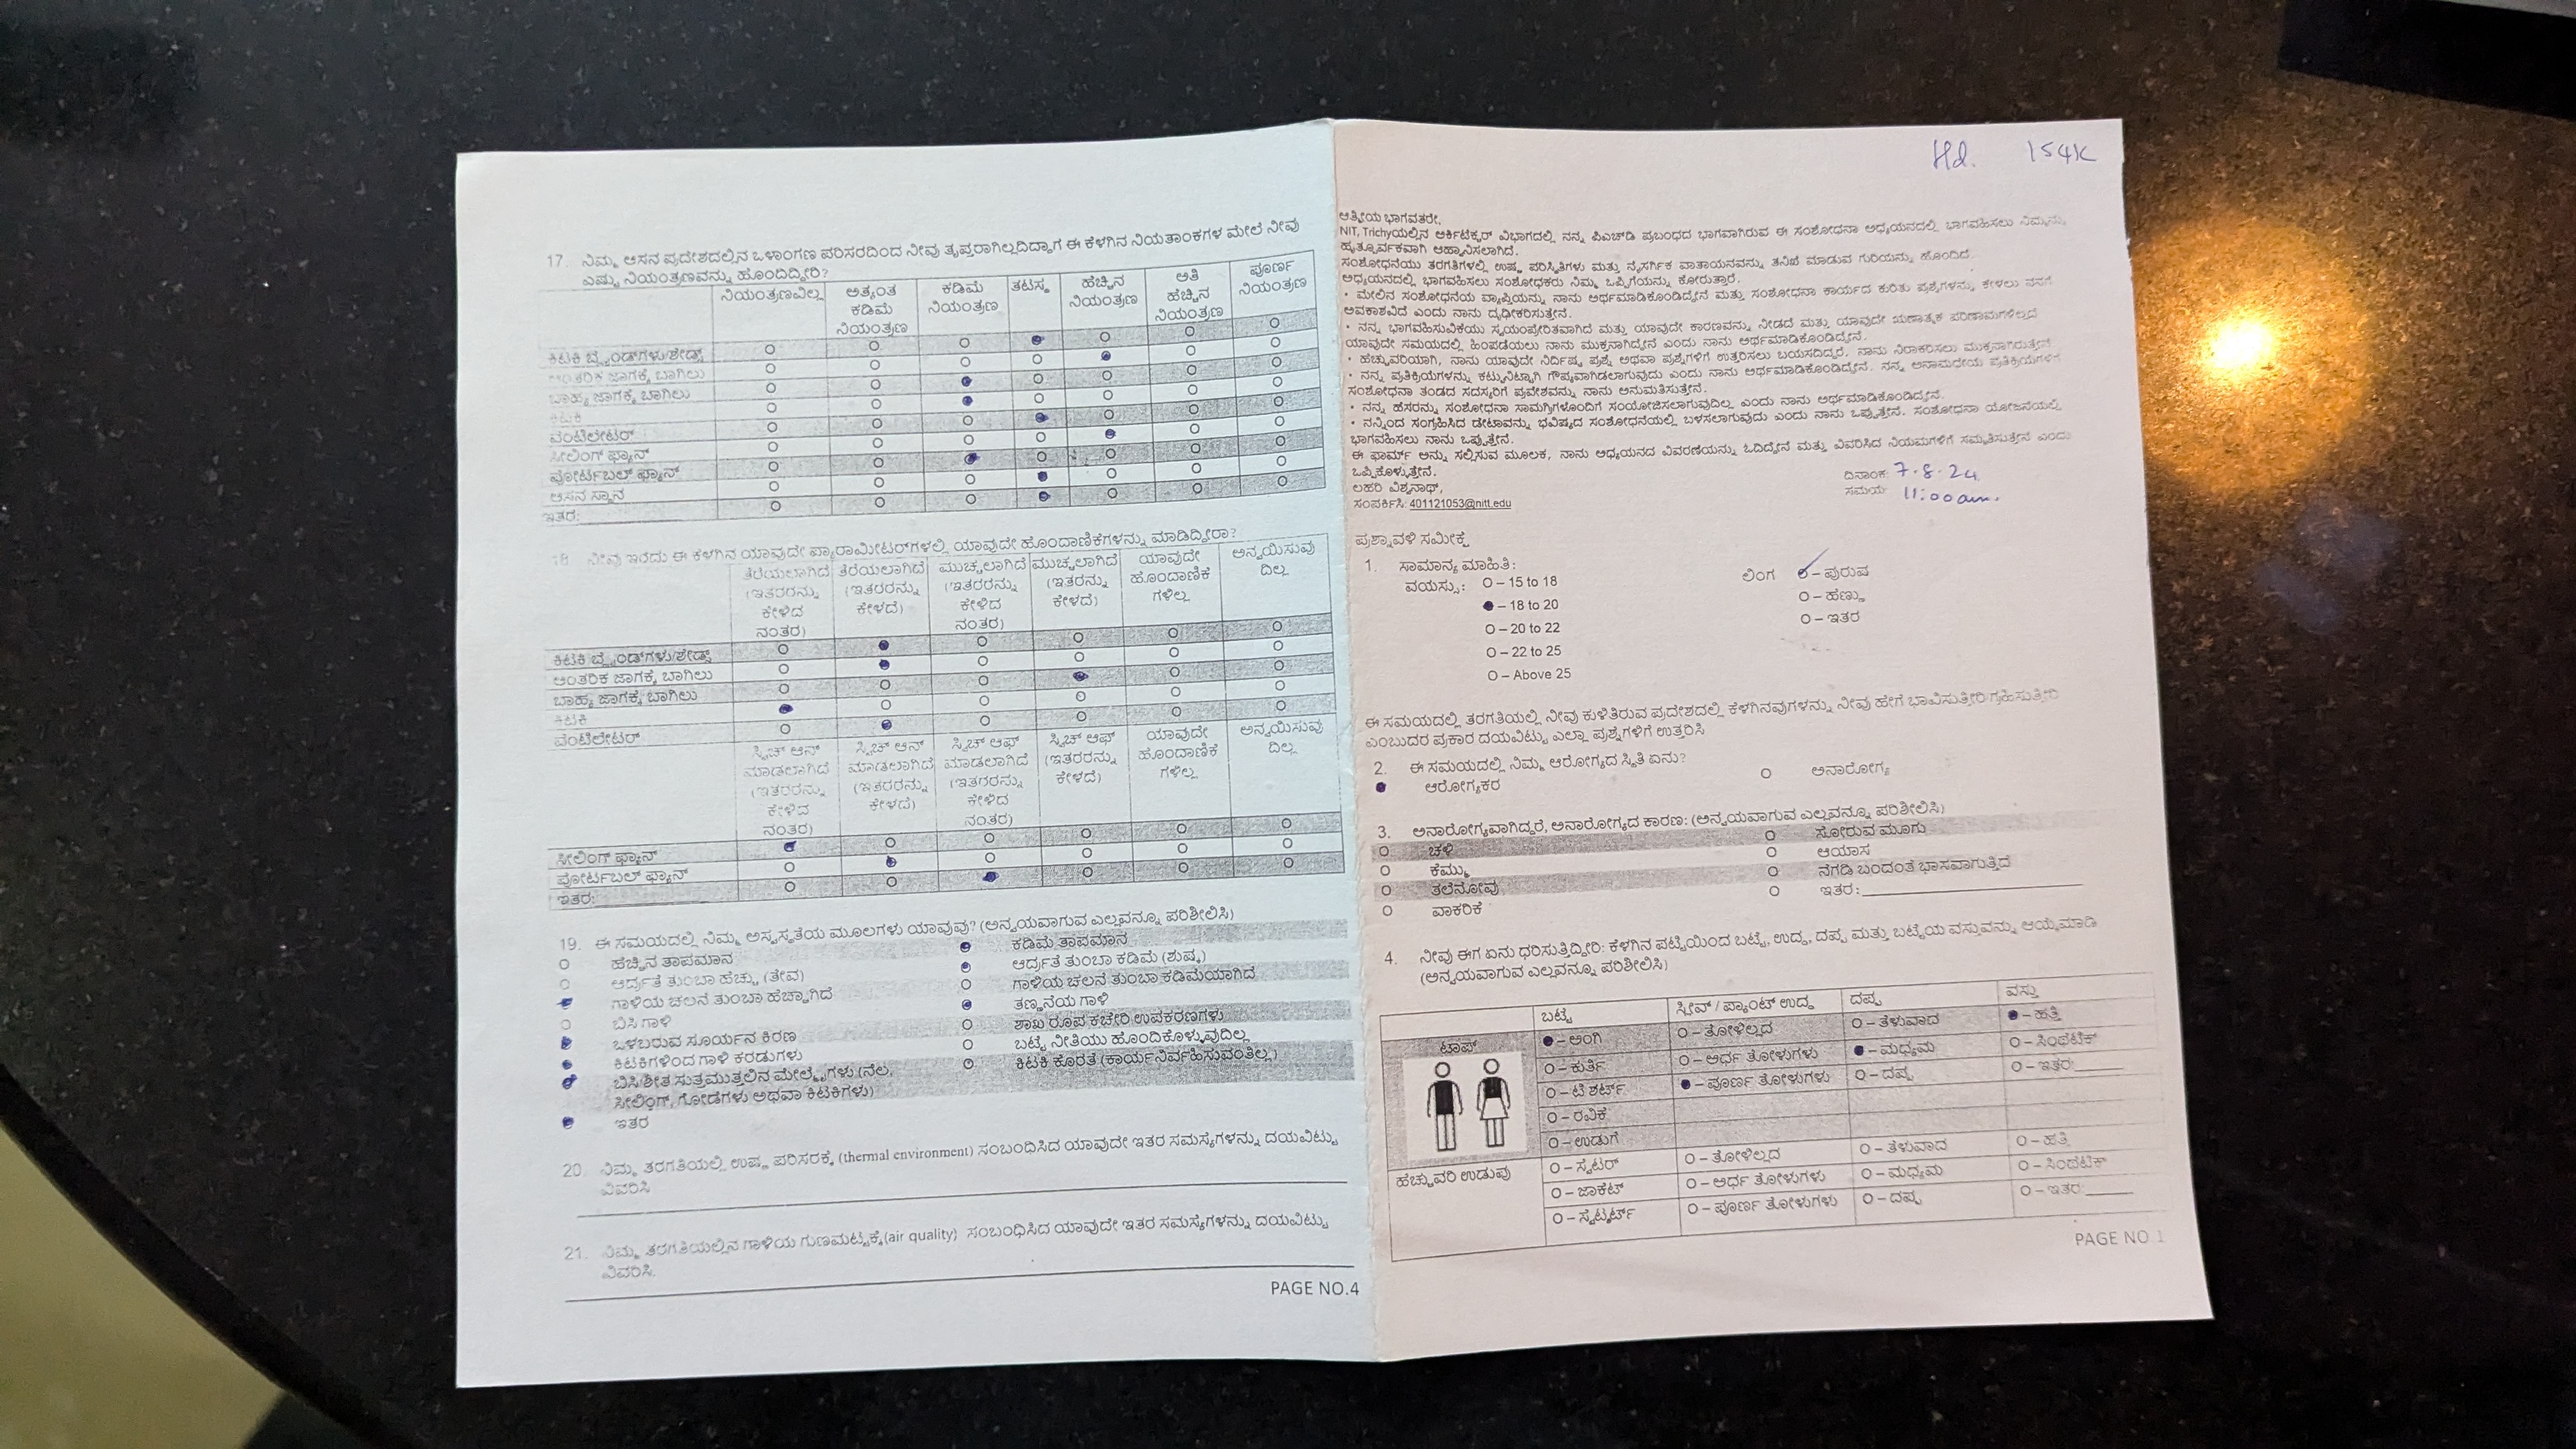 17. ನಿಮ್ಮ ಆಸನ ಪ್ರದೇಶದಲ್ಲಿನ ಒಳಾಂಗಣ ಪರಿಸರದಿಂದ ನೀವು ತೃಪ್ತರಾಗಿಲ್ಲದಿದ್ದಾಗ ಈ ಕೆಳಗಿನ ನಿಯತಾಂಕಗಳ ಮೇಲೆ ನೀವು
ಎಷ್ಟು ನಿಯಂತ್ರಣವನ್ನು ಹೊಂದಿದ್ದೀರಿ?
ನಿಯಂತ್ರಣವಿಲ್ಲ ಅತ್ಯಂತ ಕಡಿಮೆ ನಿಯಂತ್ರಣ ಕಡಿಮೆ ನಿಯಂತ್ರಣ ತಟಸ್ಥ ಹೆಚ್ಚಿನ ನಿಯಂತ್ರಣ ಅತಿ ಹೆಚ್ಚಿನ ನಿಯಂತ್ರಣ ಪೂರ್ಣ ನಿಯಂತ್ರಣ
ಕಿಟಕಿ ಬ್ಲೈಂಡ್‌ಗಳು/ಶೇಡ್ಸ್
ಆಂತರಿಕ ಜಾಗಕ್ಕೆ ಬಾಗಿಲು
ಬಾಹ್ಯ ಜಾಗಕ್ಕೆ ಬಾಗಿಲು
ಕಿಟಕಿ
ವೆಂಟಿಲೇಟರ್
ಸೀಲಿಂಗ್ ಫ್ಯಾನ್
ಪೋರ್ಟಬಲ್ ಫ್ಯಾನ್
ಆಸನ ಸ್ಥಾನ
ಇತರ:
18. ನೀವು ಇಂದು ಈ ಕೆಳಗಿನ ಯಾವುದೇ ಪ್ಯಾರಾಮೀಟರ್‌ಗಳಲ್ಲಿ ಯಾವುದೇ ಹೊಂದಾಣಿಕೆಗಳನ್ನು ಮಾಡಿದ್ದೀರಾ?
ತೆರೆಯಲಾಗಿದೆ (ಇತರರನ್ನು ಕೇಳಿದ ನಂತರ) ತೆರೆಯಲಾಗಿದೆ (ಇತರರನ್ನು ಕೇಳದೆ) ಮುಚ್ಚಲಾಗಿದೆ (ಇತರರನ್ನು ಕೇಳಿದ ನಂತರ) ಮುಚ್ಚಲಾಗಿದೆ (ಇತರರನ್ನು ಕೇಳದೆ) ಯಾವುದೇ ಹೊಂದಾಣಿಕೆ ಗಳಿಲ್ಲ ಅನ್ವಯಿಸುವು ದಿಲ್ಲ
ಕಿಟಕಿ ಬ್ಲೈಂಡ್‌ಗಳು/ಶೇಡ್ಸ್
ಆಂತರಿಕ ಜಾಗಕ್ಕೆ ಬಾಗಿಲು
ಬಾಹ್ಯ ಜಾಗಕ್ಕೆ ಬಾಗಿಲು
ಕಿಟಕಿ
ವೆಂಟಿಲೇಟರ್
ಸ್ವಿಚ್ ಆನ್ ಮಾಡಲಾಗಿದೆ (ಇತರರನ್ನು ಕೇಳಿದ ನಂತರ) ಸ್ವಿಚ್ ಆನ್ ಮಾಡಲಾಗಿದೆ (ಇತರರನ್ನು ಕೇಳದೆ) ಸ್ವಿಚ್ ಆಫ್ ಮಾಡಲಾಗಿದೆ (ಇತರರನ್ನು ಕೇಳಿದ ನಂತರ) ಸ್ವಿಚ್ ಆಫ್ (ಇತರರನ್ನು ಕೇಳದೆ) ಯಾವುದೇ ಹೊಂದಾಣಿಕೆ ಗಳಿಲ್ಲ ಅನ್ವಯಿಸುವು ದಿಲ್ಲ
ಸೀಲಿಂಗ್ ಫ್ಯಾನ್
ಪೋರ್ಟಬಲ್ ಫ್ಯಾನ್
ಇತರ:
19. ಈ ಸಮಯದಲ್ಲಿ ನಿಮ್ಮ ಅಸ್ವಸ್ಥತೆಯ ಮೂಲಗಳು ಯಾವುವು? (ಅನ್ವಯವಾಗುವ ಎಲ್ಲವನ್ನೂ ಪರಿಶೀಲಿಸಿ)
ಹೆಚ್ಚಿನ ತಾಪಮಾನ ಕಡಿಮೆ ತಾಪಮಾನ
ಆರ್ದ್ರತೆ ತುಂಬಾ ಹೆಚ್ಚು (ತೇವ) ಆರ್ದ್ರತೆ ತುಂಬಾ ಕಡಿಮೆ (ಶುಷ್ಕ)
ಗಾಳಿಯ ಚಲನೆ ತುಂಬಾ ಹೆಚ್ಚಾಗಿದೆ ಗಾಳಿಯ ಚಲನೆ ತುಂಬಾ ಕಡಿಮೆಯಾಗಿದೆ
ಬಿಸಿ ಗಾಳಿ ತಣ್ಣನೆಯ ಗಾಳಿ
ಒಳಬರುವ ಸೂರ್ಯನ ಕಿರಣ ಶಾಖ ರೂಪ ಕಚೇರಿ ಉಪಕರಣಗಳು
ಕಿಟಕಿಗಳಿಂದ ಗಾಳಿ ಕರಡುಗಳು ಬಟ್ಟೆ ನೀತಿಯು ಹೊಂದಿಕೊಳ್ಳುವುದಿಲ್ಲ
ಬಿಸಿ/ಶೀತ ಸುತ್ತಮುತ್ತಲಿನ ಮೇಲ್ಮೈಗಳು (ನೆಲ, ಕಿಟಕಿ ಕೊರತೆ (ಕಾರ್ಯನಿರ್ವಹಿಸುವಂತಿಲ್ಲ)
ಸೀಲಿಂಗ್, ಗೋಡೆಗಳು ಅಥವಾ ಕಿಟಕಿಗಳು)
ಇತರ
20. ನಿಮ್ಮ ತರಗತಿಯಲ್ಲಿ ಉಷ್ಣ ಪರಿಸರಕ್ಕೆ (thermal environment) ಸಂಬಂಧಿಸಿದ ಯಾವುದೇ ಇತರ ಸಮಸ್ಯೆಗಳನ್ನು ದಯವಿಟ್ಟು
ವಿವರಿಸಿ
21. ನಿಮ್ಮ ತರಗತಿಯಲ್ಲಿನ ಗಾಳಿಯ ಗುಣಮಟ್ಟಕ್ಕೆ(air quality) ಸಂಬಂಧಿಸಿದ ಯಾವುದೇ ಇತರ ಸಮಸ್ಯೆಗಳನ್ನು ದಯವಿಟ್ಟು
ವಿವರಿಸಿ.
PAGE NO.4
Hd. 154K
ಆತ್ಮೀಯ ಭಾಗವತರೇ,
NIT, Trichyಯಲ್ಲಿನ ಆರ್ಕಿಟೆಕ್ಚರ್ ವಿಭಾಗದಲ್ಲಿ ನನ್ನ ಪಿಎಚ್‌ಡಿ ಪ್ರಬಂಧದ ಭಾಗವಾಗಿರುವ ಈ ಸಂಶೋಧನಾ ಅಧ್ಯಯನದಲ್ಲಿ ಭಾಗವಹಿಸಲು ನಿಮ್ಮನ್ನು
ಹೃತ್ಪೂರ್ವಕವಾಗಿ ಆಹ್ವಾನಿಸಲಾಗಿದೆ.
ಸಂಶೋಧನೆಯು ತರಗತಿಗಳಲ್ಲಿ ಉಷ್ಣ ಪರಿಸ್ಥಿತಿಗಳು ಮತ್ತು ನೈಸರ್ಗಿಕ ವಾತಾಯನವನ್ನು ತನಿಖೆ ಮಾಡುವ ಗುರಿಯನ್ನು ಹೊಂದಿದೆ.
ಅಧ್ಯಯನದಲ್ಲಿ ಭಾಗವಹಿಸಲು ಸಂಶೋಧಕರು ನಿಮ್ಮ ಒಪ್ಪಿಗೆಯನ್ನು ಕೋರುತ್ತಾರೆ.
• ಮೇಲಿನ ಸಂಶೋಧನೆಯ ವ್ಯಾಪ್ತಿಯನ್ನು ನಾನು ಅರ್ಥಮಾಡಿಕೊಂಡಿದ್ದೇನೆ ಮತ್ತು ಸಂಶೋಧನಾ ಕಾರ್ಯದ ಕುರಿತು ಪ್ರಶ್ನೆಗಳನ್ನು ಕೇಳಲು ನನಗೆ
ಅವಕಾಶವಿದೆ ಎಂದು ನಾನು ದೃಢೀಕರಿಸುತ್ತೇನೆ.
• ನನ್ನ ಭಾಗವಹಿಸುವಿಕೆಯು ಸ್ವಯಂಪ್ರೇರಿತವಾಗಿದೆ ಮತ್ತು ಯಾವುದೇ ಕಾರಣವನ್ನು ನೀಡದೆ ಮತ್ತು ಯಾವುದೇ ಋಣಾತ್ಮಕ ಪರಿಣಾಮಗಳಿಲ್ಲದೆ
ಯಾವುದೇ ಸಮಯದಲ್ಲಿ ಹಿಂಪಡೆಯಲು ನಾನು ಮುಕ್ತನಾಗಿದ್ದೇನೆ ಎಂದು ನಾನು ಅರ್ಥಮಾಡಿಕೊಂಡಿದ್ದೇನೆ.
• ಹೆಚ್ಚುವರಿಯಾಗಿ, ನಾನು ಯಾವುದೇ ನಿರ್ದಿಷ್ಟ ಪ್ರಶ್ನೆ ಅಥವಾ ಪ್ರಶ್ನೆಗಳಿಗೆ ಉತ್ತರಿಸಲು ಬಯಸದಿದ್ದರೆ, ನಾನು ನಿರಾಕರಿಸಲು ಮುಕ್ತನಾಗಿರುತ್ತೇನೆ
• ನನ್ನ ಪ್ರತಿಕ್ರಿಯೆಗಳನ್ನು ಕಟ್ಟುನಿಟ್ಟಾಗಿ ಗೌಪ್ಯವಾಗಿಡಲಾಗುವುದು ಎಂದು ನಾನು ಅರ್ಥಮಾಡಿಕೊಂಡಿದ್ದೇನೆ. ನನ್ನ ಅನಾಮಧೇಯ ಪ್ರತಿಕ್ರಿಯೆಗಳಿಗೆ
ಸಂಶೋಧನಾ ತಂಡದ ಸದಸ್ಯರಿಗೆ ಪ್ರವೇಶವನ್ನು ನಾನು ಅನುಮತಿಸುತ್ತೇನೆ.
• ನನ್ನ ಹೆಸರನ್ನು ಸಂಶೋಧನಾ ಸಾಮಗ್ರಿಗಳೊಂದಿಗೆ ಸಂಯೋಜಿಸಲಾಗುವುದಿಲ್ಲ ಎಂದು ನಾನು ಅರ್ಥಮಾಡಿಕೊಂಡಿದ್ದೇನೆ.
• ನನ್ನಿಂದ ಸಂಗ್ರಹಿಸಿದ ಡೇಟಾವನ್ನು ಭವಿಷ್ಯದ ಸಂಶೋಧನೆಯಲ್ಲಿ ಬಳಸಲಾಗುವುದು ಎಂದು ನಾನು ಒಪ್ಪುತ್ತೇನೆ. ಸಂಶೋಧನಾ ಯೋಜನೆಯಲ್ಲಿ
ಭಾಗವಹಿಸಲು ನಾನು ಒಪ್ಪುತ್ತೇನೆ.
ಈ ಫಾರ್ಮ್ ಅನ್ನು ಸಲ್ಲಿಸುವ ಮೂಲಕ, ನಾನು ಅಧ್ಯಯನದ ವಿವರಣೆಯನ್ನು ಓದಿದ್ದೇನೆ ಮತ್ತು ವಿವರಿಸಿದ ನಿಯಮಗಳಿಗೆ ಸಮ್ಮತಿಸುತ್ತೇನೆ ಎಂದು
ಒಪ್ಪಿಕೊಳ್ಳುತ್ತೇನೆ.
ದಿನಾಂಕ: 7.8.24
ಲಹರಿ ವಿಶ್ವನಾಥ್,
ಸಮಯ: 11:00am.
ಸಂಪರ್ಕಿಸಿ: 401121053@nitt.edu
ಪ್ರಶ್ನಾವಳಿ ಸಮೀಕ್ಷೆ
1. ಸಾಮಾನ್ಯ ಮಾಹಿತಿ:
ವಯಸ್ಸು: – 15 to 18 ಲಿಂಗ – ಪುರುಷ
– 18 to 20 – ಹೆಣ್ಣು
– 20 to 22 – ಇತರ
– 22 to 25
– Above 25
ಈ ಸಮಯದಲ್ಲಿ ತರಗತಿಯಲ್ಲಿ ನೀವು ಕುಳಿತಿರುವ ಪ್ರದೇಶದಲ್ಲಿ ಕೆಳಗಿನವುಗಳನ್ನು ನೀವು ಹೇಗೆ ಭಾವಿಸುತ್ತೀರಿ/ಗ್ರಹಿಸುತ್ತೀರಿ
ಎಂಬುದರ ಪ್ರಕಾರ ದಯವಿಟ್ಟು ಎಲ್ಲಾ ಪ್ರಶ್ನೆಗಳಿಗೆ ಉತ್ತರಿಸಿ
2. ಈ ಸಮಯದಲ್ಲಿ ನಿಮ್ಮ ಆರೋಗ್ಯದ ಸ್ಥಿತಿ ಏನು?
ಆರೋಗ್ಯಕರ ಅನಾರೋಗ್ಯ
3. ಅನಾರೋಗ್ಯವಾಗಿದ್ದರೆ, ಅನಾರೋಗ್ಯದ ಕಾರಣ: (ಅನ್ವಯವಾಗುವ ಎಲ್ಲವನ್ನೂ ಪರಿಶೀಲಿಸಿ)
ಚಳಿ ಸೋರುವ ಮೂಗು
ಕೆಮ್ಮು ಆಯಾಸ
ತಲೆನೋವು ನೆಗಡಿ ಬಂದಂತೆ ಭಾಸವಾಗುತ್ತಿದೆ
ವಾಕರಿಕೆ ಇತರ:
4. ನೀವು ಈಗ ಏನು ಧರಿಸುತ್ತಿದ್ದೀರಿ: ಕೆಳಗಿನ ಪಟ್ಟಿಯಿಂದ ಬಟ್ಟೆ, ಉದ್ದ, ದಪ್ಪ ಮತ್ತು ಬಟ್ಟೆಯ ವಸ್ತುವನ್ನು ಆಯ್ಕೆಮಾಡಿ
(ಅನ್ವಯವಾಗುವ ಎಲ್ಲವನ್ನೂ ಪರಿಶೀಲಿಸಿ)
ಬಟ್ಟೆ ಸ್ಲೀವ್ / ಪ್ಯಾಂಟ್ ಉದ್ದ ದಪ್ಪ ವಸ್ತು
ಟಾಪ್ – ಅಂಗಿ – ತೋಳಿಲ್ಲದ – ತೆಳುವಾದ – ಹತ್ತಿ
– ಕುರ್ತಿ – ಅರ್ಧ ತೋಳುಗಳು – ಮಧ್ಯಮ – ಸಿಂಥೆಟಿಕ್
– ಟಿ ಶರ್ಟ್ – ಪೂರ್ಣ ತೋಳುಗಳು – ದಪ್ಪ – ಇತರ:
– ರವಿಕೆ
– ಉಡುಗೆ
ಹೆಚ್ಚುವರಿ ಉಡುಪು – ಸ್ವೆಟರ್ – ತೋಳಿಲ್ಲದ – ತೆಳುವಾದ – ಹತ್ತಿ
– ಜಾಕೆಟ್ – ಅರ್ಧ ತೋಳುಗಳು – ಮಧ್ಯಮ – ಸಿಂಥೆಟಿಕ್
– ಸ್ವೆಟ್ಶರ್ಟ್ – ಪೂರ್ಣ ತೋಳುಗಳು – ದಪ್ಪ – ಇತರ:
PAGE NO 1